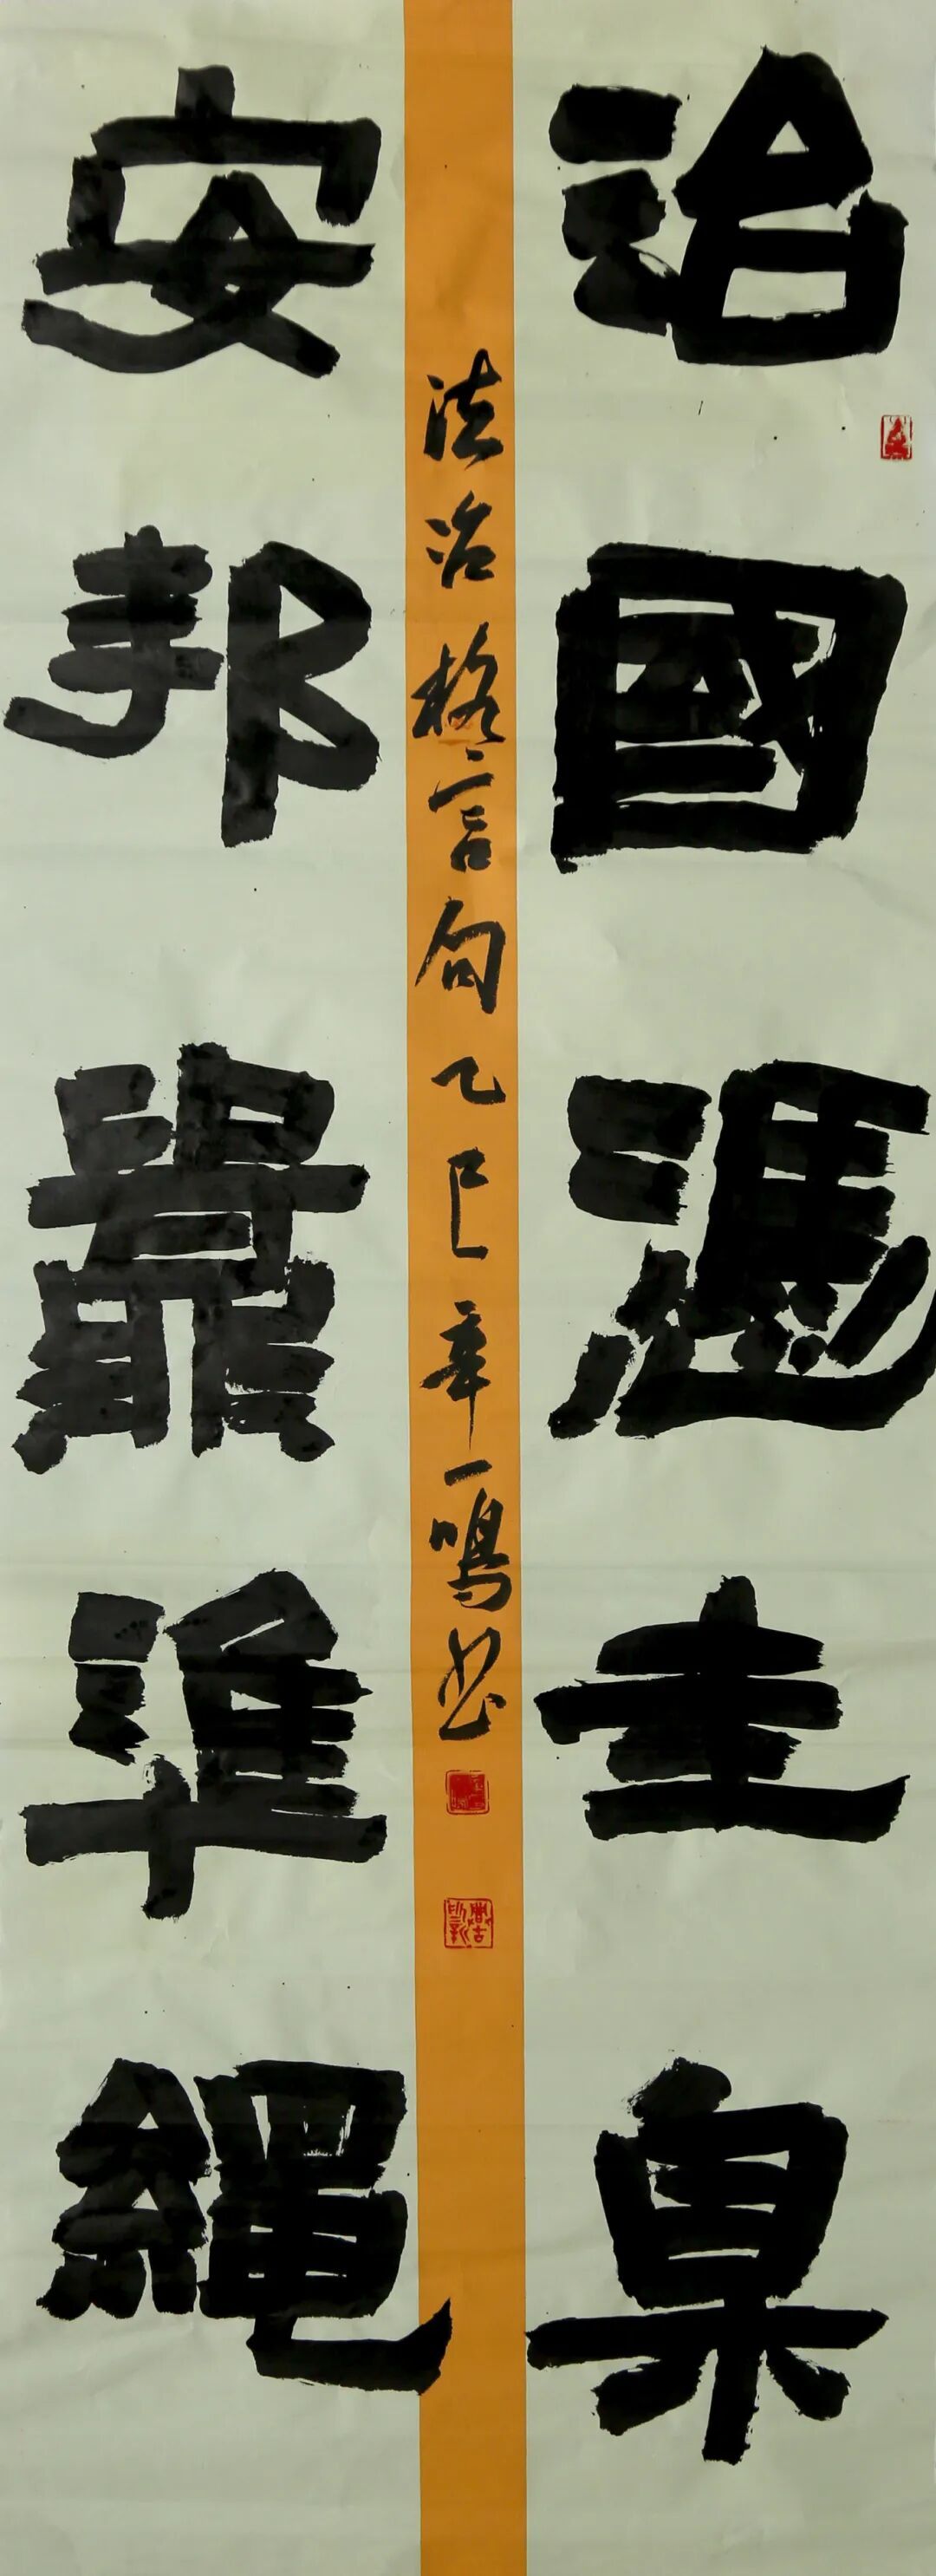 治國憑圭臬
安邦靠準繩
法治格言句乙巳辛一鳴书